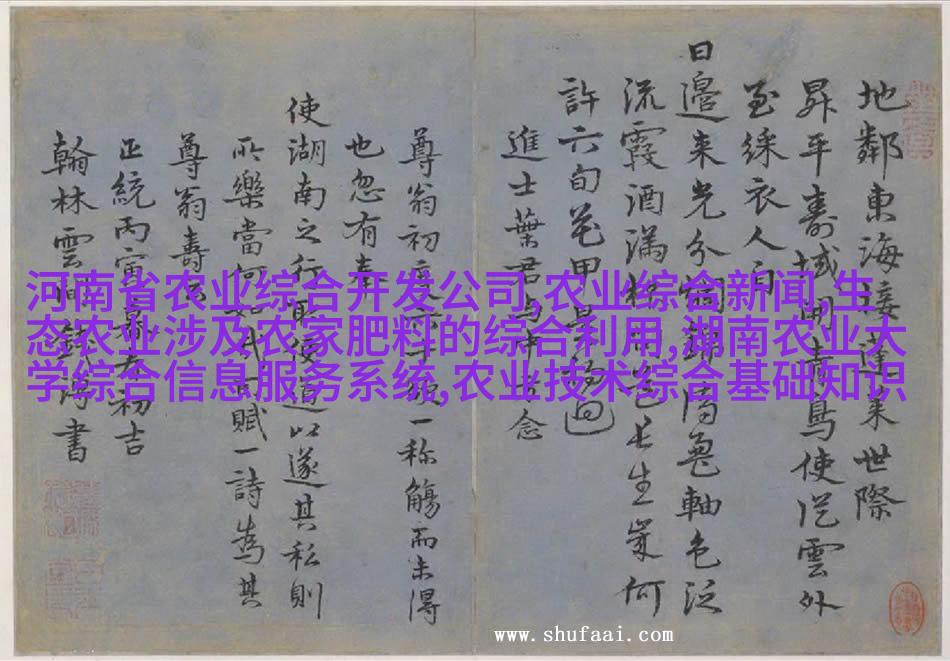 地鄰東海接蓬萊世際
昇平壽域開青鳥使從雲外
至綵衣人自
日邊来光分錦屏龜軸色泛
流霞酒满色长生策何
許六旬花甲是迴
進士葉君中念
尊翁初度一称觴而未得
也忽有奉
使湖南之行取便道以遂其私則
所樂當何如哉賦一詩為其
尊翁壽云
正統丙寅初吉
翰林雲間錢溥書
河南省农业综合开发公司,农业综合新闻,生
态农业涉及农家肥料的综合利用,湖南农业大
学综合信息服务系统,农业技术综合基础知识
www.shufaai.com